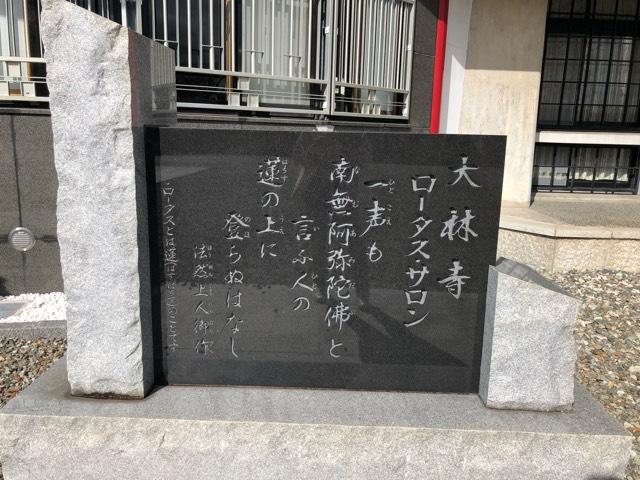 大林寺
ロータスサロン
一声も
南無阿弥陀佛と
言ふ人の
蓮の上に
登らぬはなし
法然上人御作
ロータスとは蓮はすはなのことです